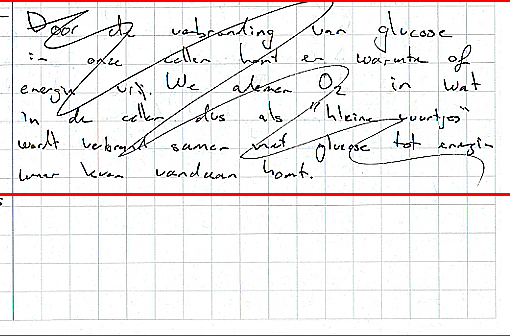 Door de verbranding van glucose
in onze cellen komt er warmte of
energie vrij. We ademen O2 in wat
in de cellen dus als "kleine vuurtjes"
wordt verbrand samen met glucose tot energie
waar leven vandaan komt.